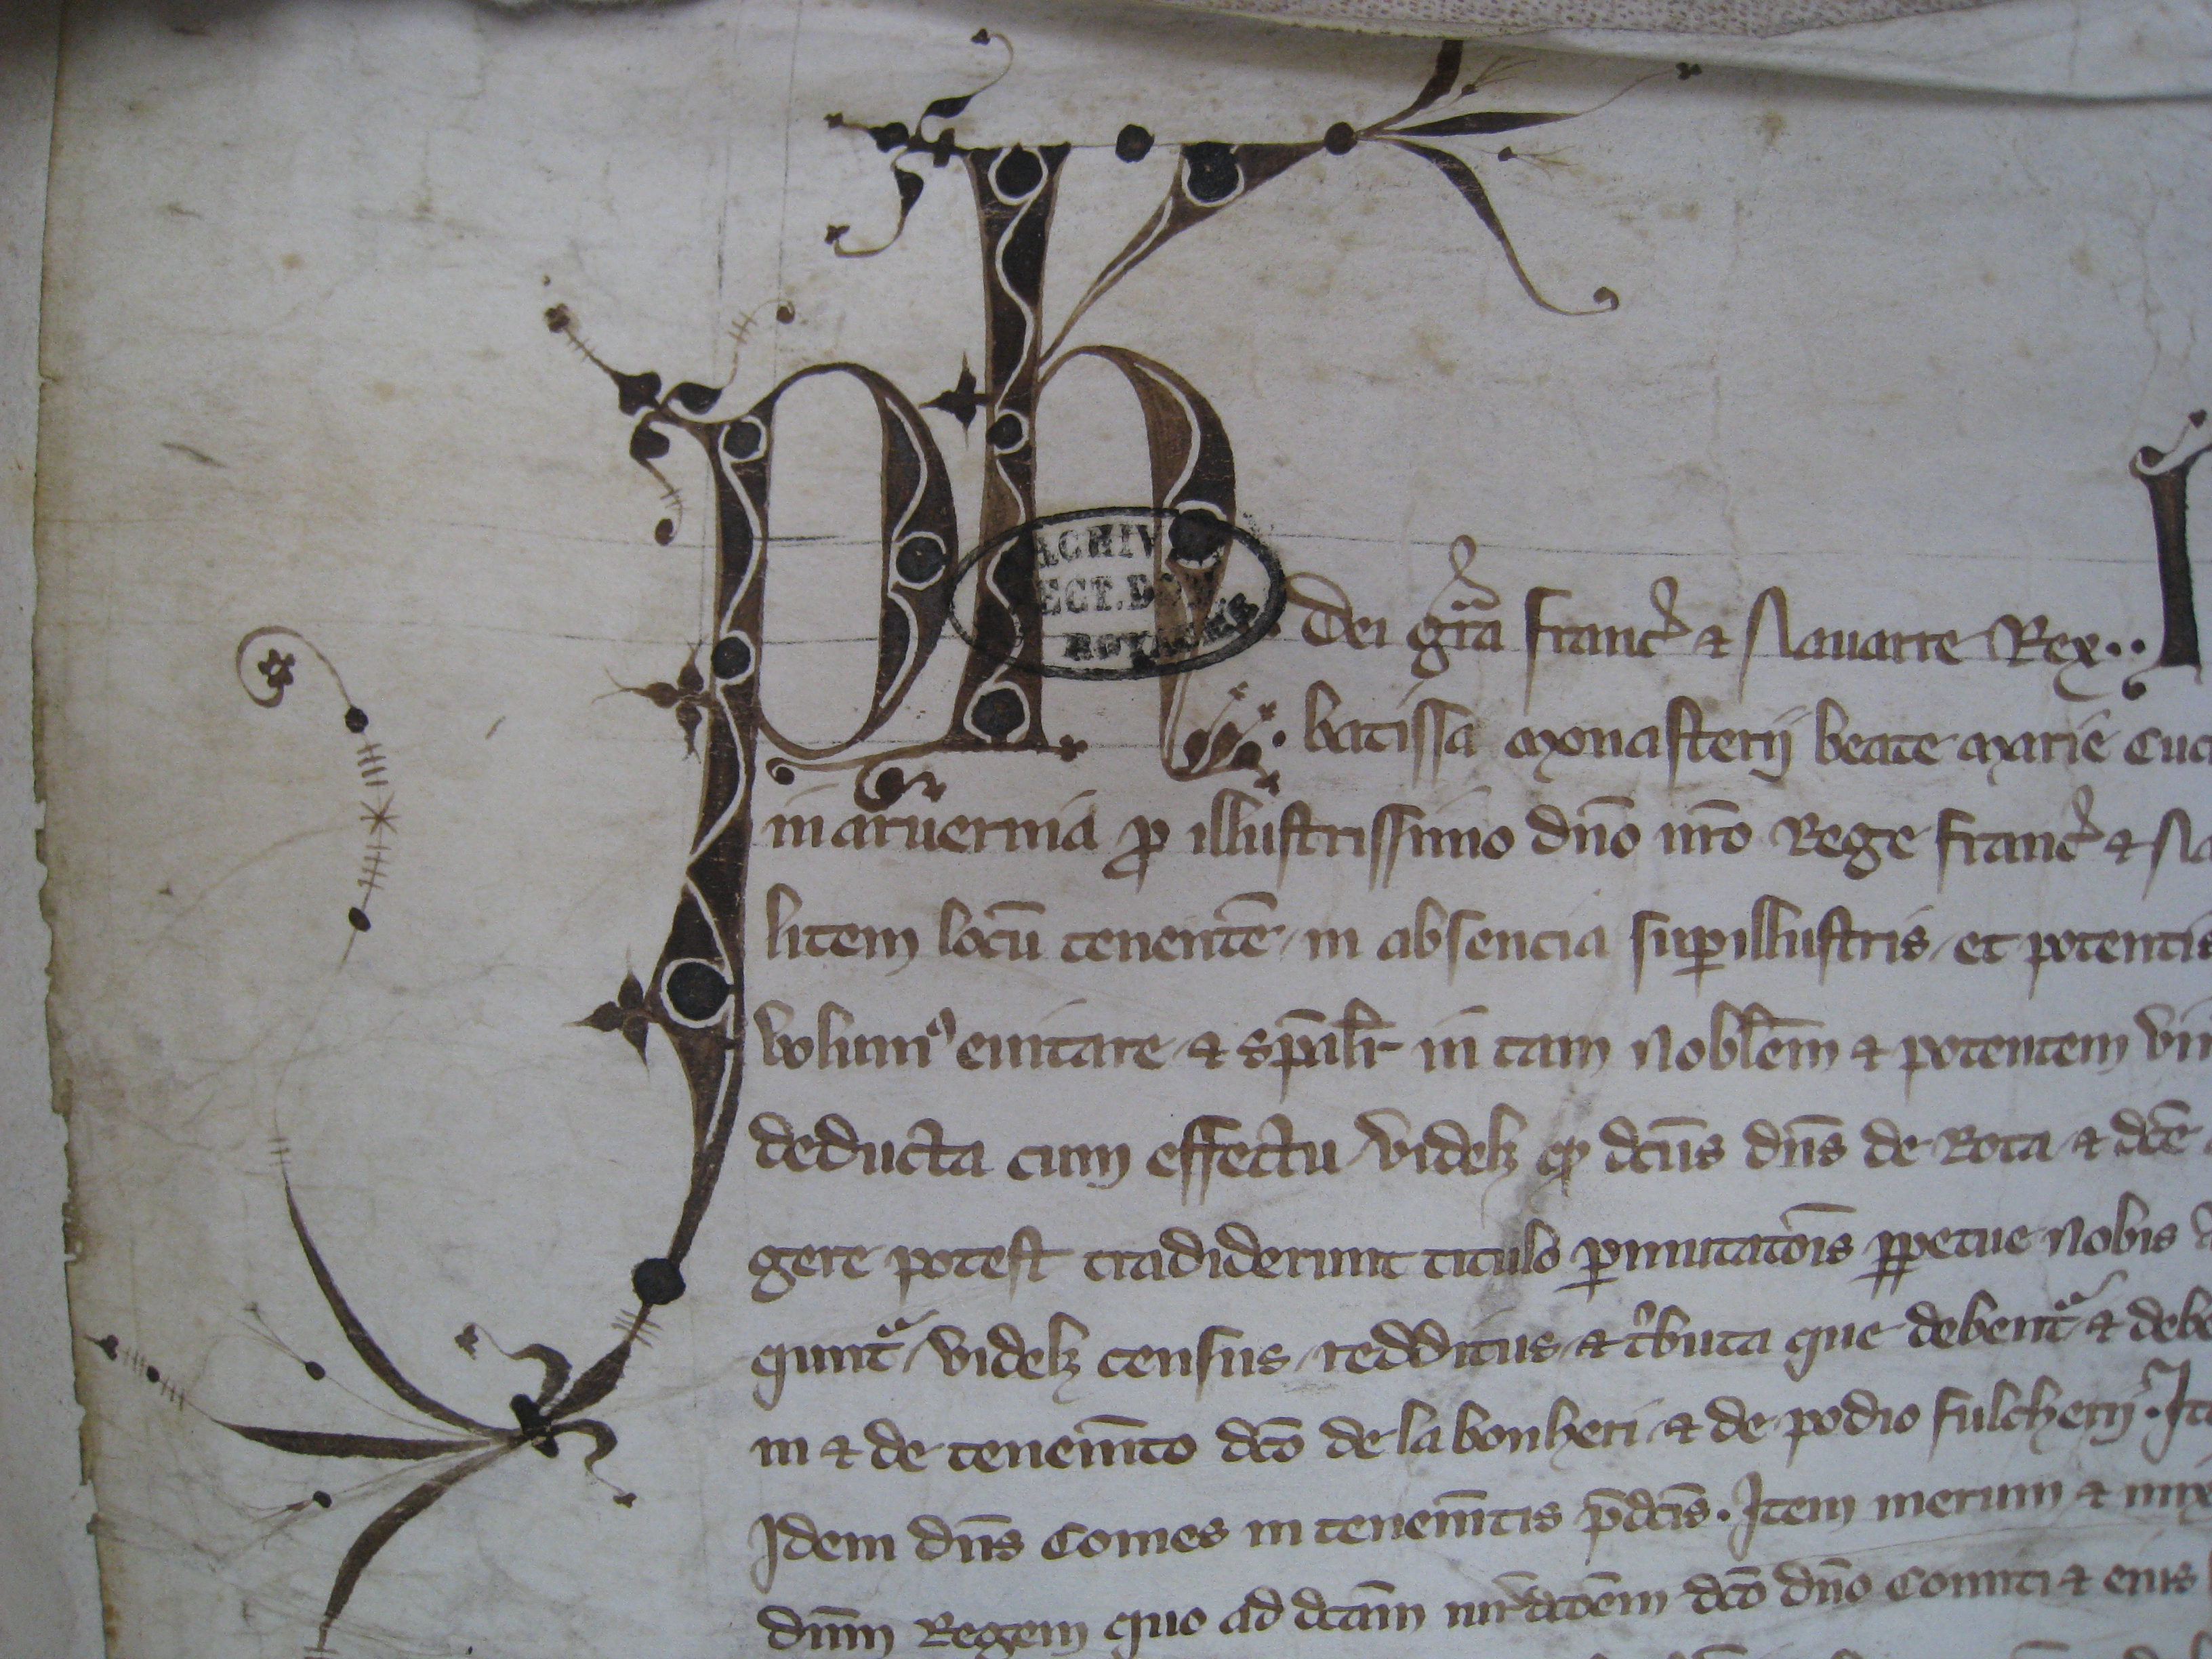 Ph Dei grã franc̃ & Nauarre Rex..
batissa monasterij beate marie
in aruernia ꝓ illustrissimo dño nr̃o Rege franc̃ &
litem locũ tenentẽ in absencia suꝑillustris et potentis
volumꝰ euitare & sp̃alr̃ in tam nobl̃em & potentem
deducta cum effectu videlꝫ ꝙ dc̃us dñs de Rota & dc̃e
gere potest tradiderunt titulo ꝑmutatõis ꝑpetue nobis
quntᷓ videlꝫ census redditus & tⁱbuta que debentᷓ &
in & de tenem̃to dc̃o de la bonheti & de podio fulcherij. It
Idem dñs Comes in tenem̃tis p̃dc̃is. Item merum &
dñm Regem quo ad dc̃am dc̃o dño Comiti & eius
ACHIV
ECT. D
ROYAUME